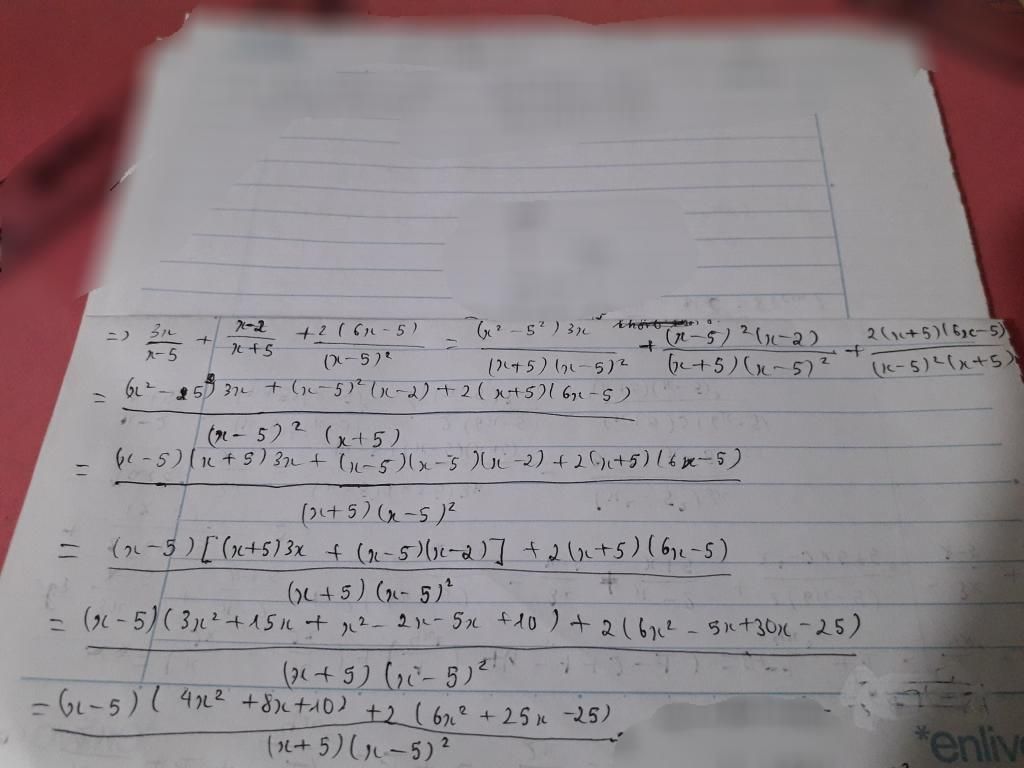 => 3x/(x-5) + (x-2)/(x+5) + 2(6x-5)/(x-5)² = (x²-5²)3x/((x+5)(x-5)²) + (x-5)²(x-2)/((x+5)(x-5)²) + 2(x+5)(6x-5)/((x-5)²(x+5))
= ((x²-25)3x + (x-5)²(x-2) + 2(x+5)(6x-5))/((x-5)²(x+5))
= ((x-5)(x+5)3x + (x-5)(x-5)(x-2) + 2(x+5)(6x-5))/((x+5)(x-5)²)
= ((x-5)[(x+5)3x + (x-5)(x-2)] + 2(x+5)(6x-5))/((x+5)(x-5)²)
= ((x-5)(3x²+15x+x²-2x-5x+10) + 2(6x²-5x+30x-25))/((x+5)(x-5)²)
= ((x-5)(4x²+8x+10) + 2(6x²+25x-25))/((x+5)(x-5)²)
*enlive